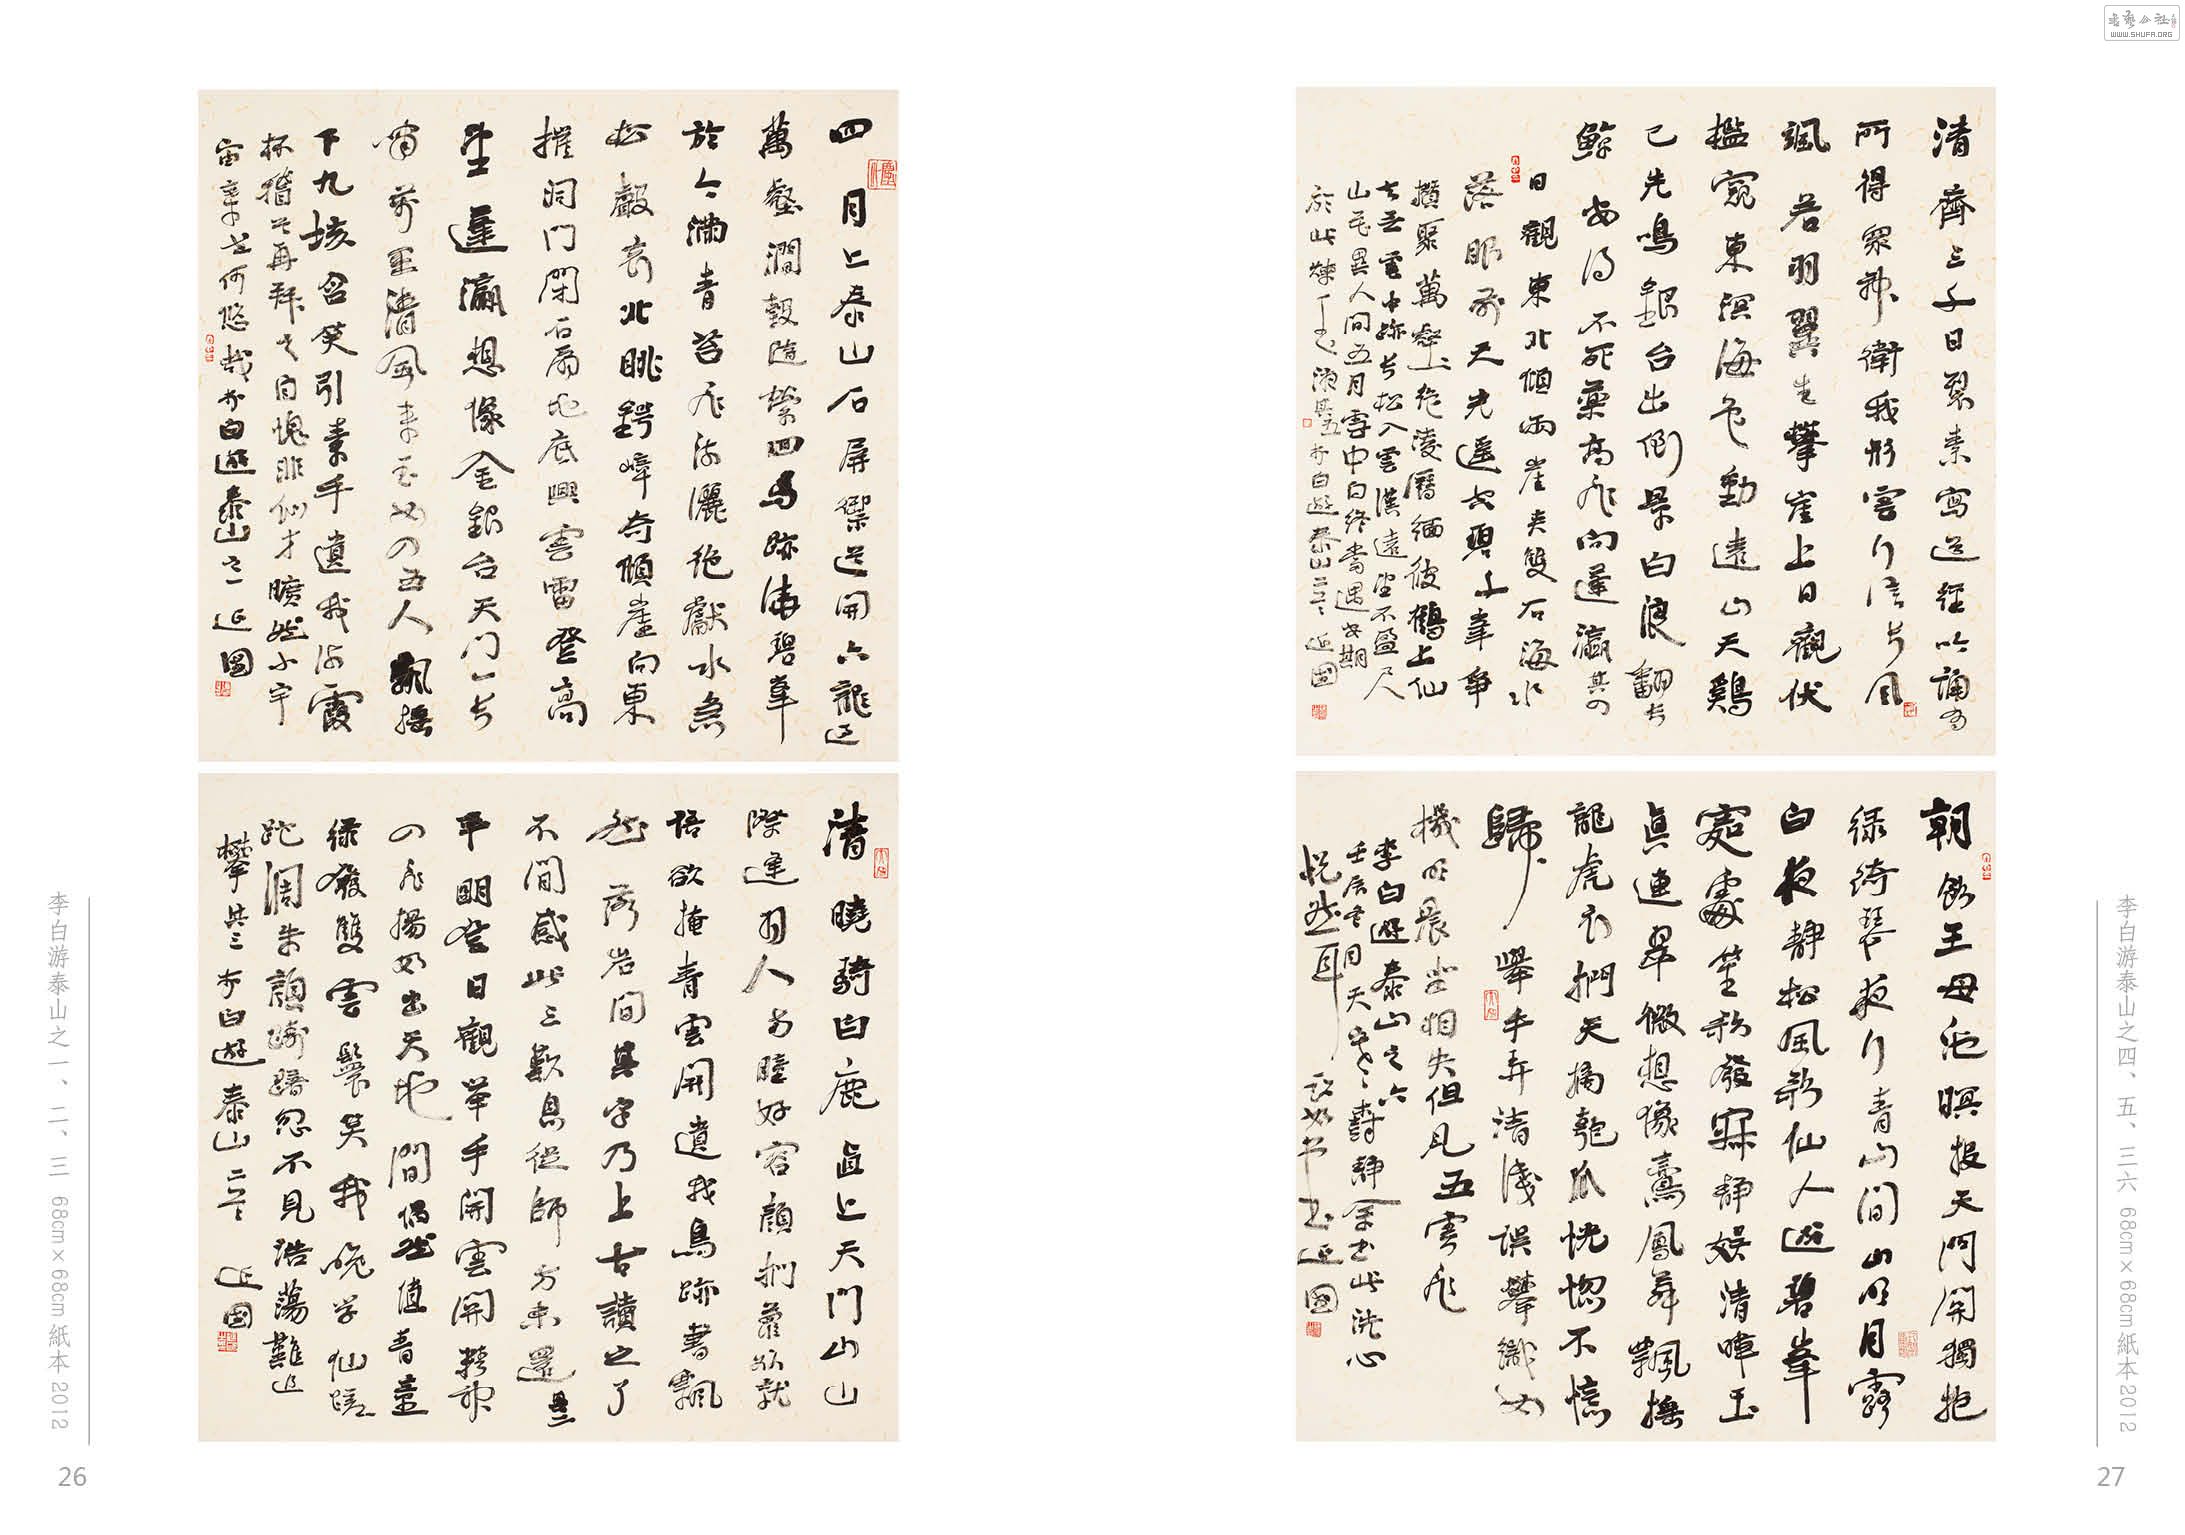 書藝公社
WWW.SHUFA.ORG
四月上泰山石屏御道開六龍過
萬壑澗轂隨縈回馬跡繞碧峯
於今滿青苔飛流灑絕巘水急
松聲哀北眺崿嶂奇傾崖向東
摧洞門閉石扇地底興雲雷登高
望蓬瀛想像金銀台天門一長
嘯萬里清風來玉女四五人飄搖
下九垓含笑引素手遺我流霞
杯稽首再拜之自愧非仙才曠然小宇
宙棄世何悠哉李白遊泰山之一 延國
清曉騎白鹿直上天門山山
際逢羽人方瞳好容顏捫蘿欲就
語欲掩青雲開遺我鳥跡書飄
然落岩間其字乃上古讀之了
不閒感此三歎息從師方未還其二
平明登日觀舉手開雲開精神
四飛揚如出天地間偶然值青童
綠發雙雲鬟笑我晚學仙蹉
跎凋朱顏躊躇忽不見浩蕩難追
攀其三 李白遊泰山二三 延國
李白游泰山之一、二、三 68cm×68cm 紙本 2012
26
清齋三千日裂素寫道經吟誦有
所得眾神衛我形雲行信長風
颯若羽翼生攀崖上日觀伏
檻窺東溟海色動遠山天鷄
已先鳴銀台出倒景白浪翻長
鯨安得不死藥高飛向蓬瀛其四
日觀東北傾兩崖夾雙石海水
落眼前天光遙空碧千峯爭
攢聚萬壑絕凌曆緬彼鶴上仙
去無雲中跡長松入雲漢遠望不盈尺
山花異人間五月雪中白終當遇安期
於此煉玉液其五 李白遊泰山 延國
朝飲王母池暝投天門開獨抱
綠綺琴夜行青山間山明月露
白夜靜松風歇仙人遊碧峯
處處笙歌發寂靜娛清暉玉
真連翠微想像鸞鳳舞飄搖
龍虎衣捫天摘匏瓜恍惚不憶
歸舉手弄清淺誤攀織女
機明晨坐相失但見五雲飛
李白遊泰山之六
壬辰冬月天寒靜余書此洗心
悅然耳 延國
李白游泰山之四、五、三六 68cm×68cm 紙本2012
27